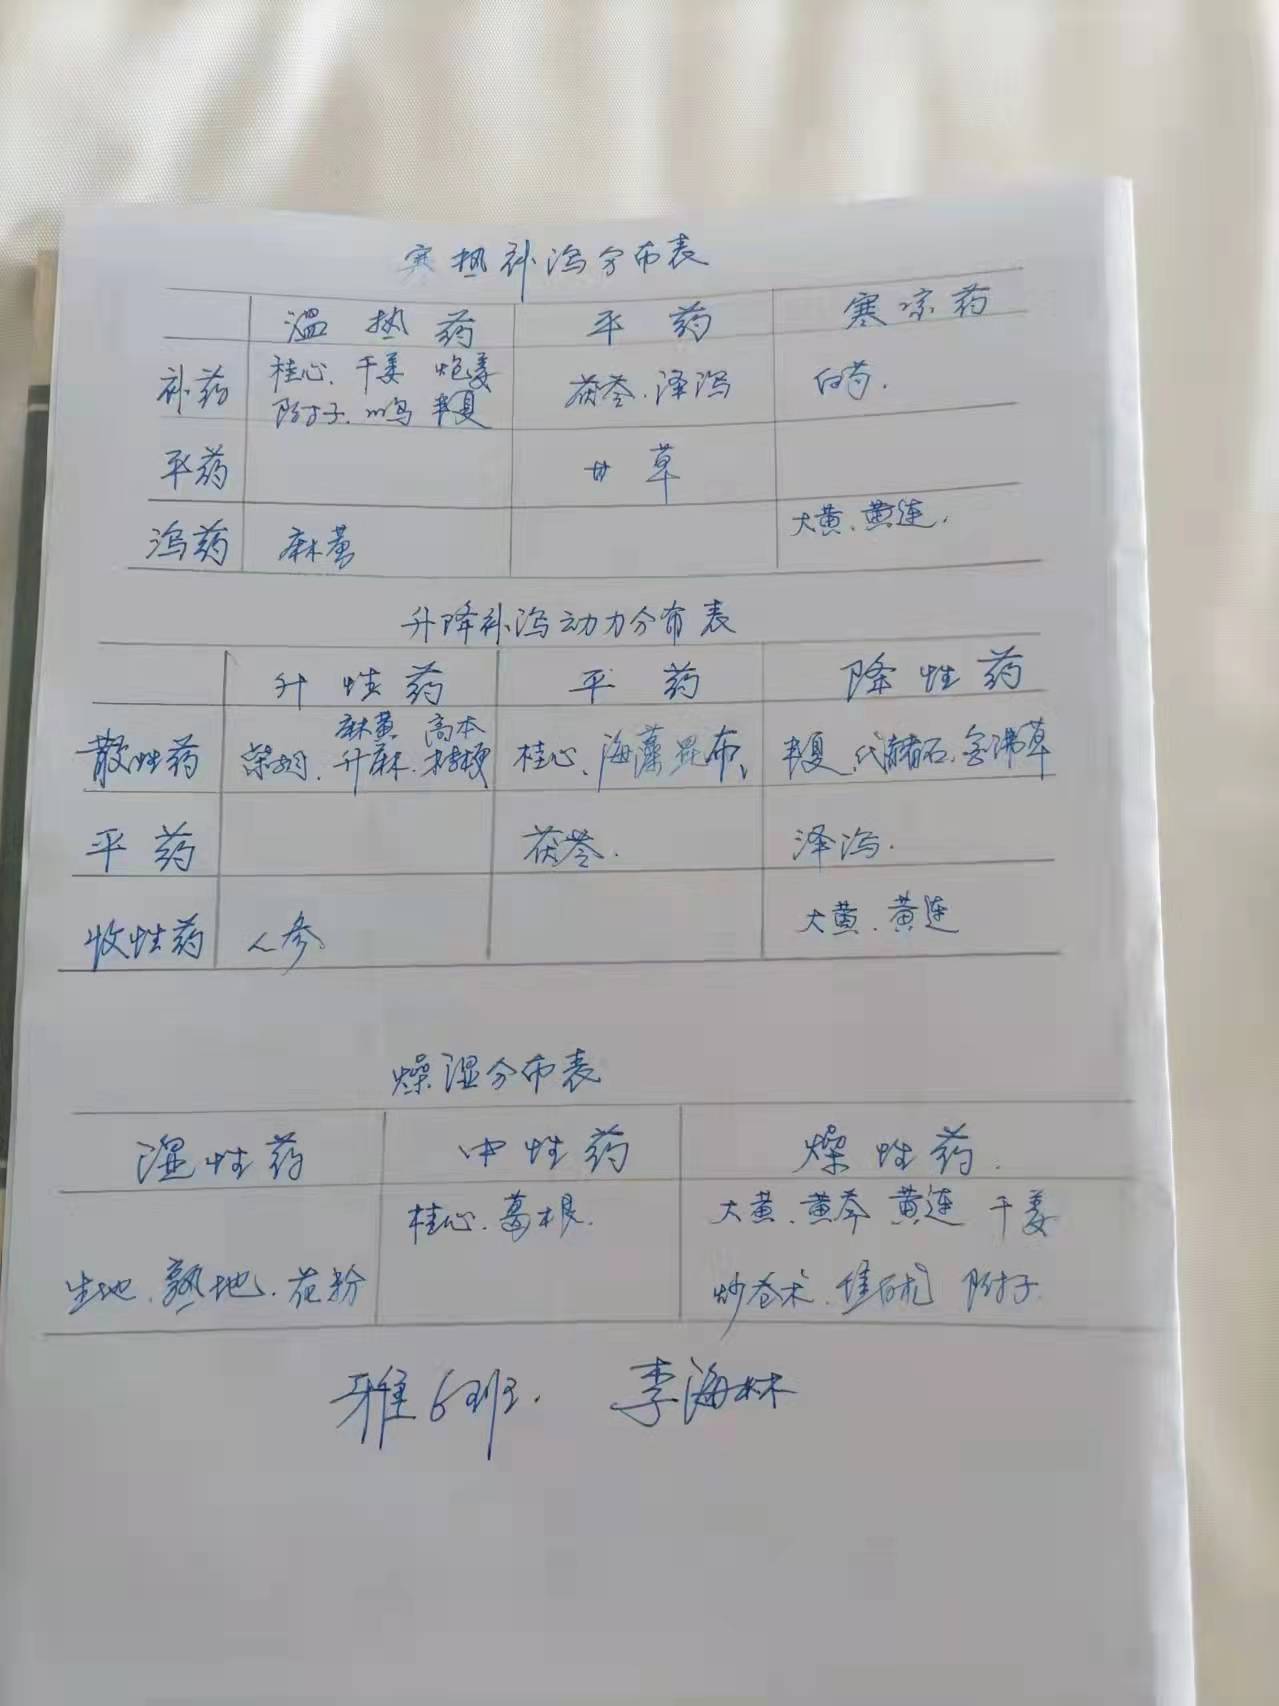 寒热补泻分布表
温热药 平药 寒凉药
补药 桂心、干姜 炮姜 茯苓、泽泻 白芍.
附子、川乌 半夏
平药 甘草
泻药 麻黄 大黄、黄连.
升降补泻动力分布表
升性药 平药 降性药
麻黄 高本
散性药 柴胡、升麻、桔梗 桂心、海藻昆布、 半夏、代赭石、
平药 茯苓. 泽泻.
收性药 人参 大黄、黄连
燥湿分布表
湿性药 中性药 燥性药.
桂心、葛根. 大黄、黄芩 黄连 干姜
生地、熟地、花粉 炒苍术、 附子.
雅6班. 李海林